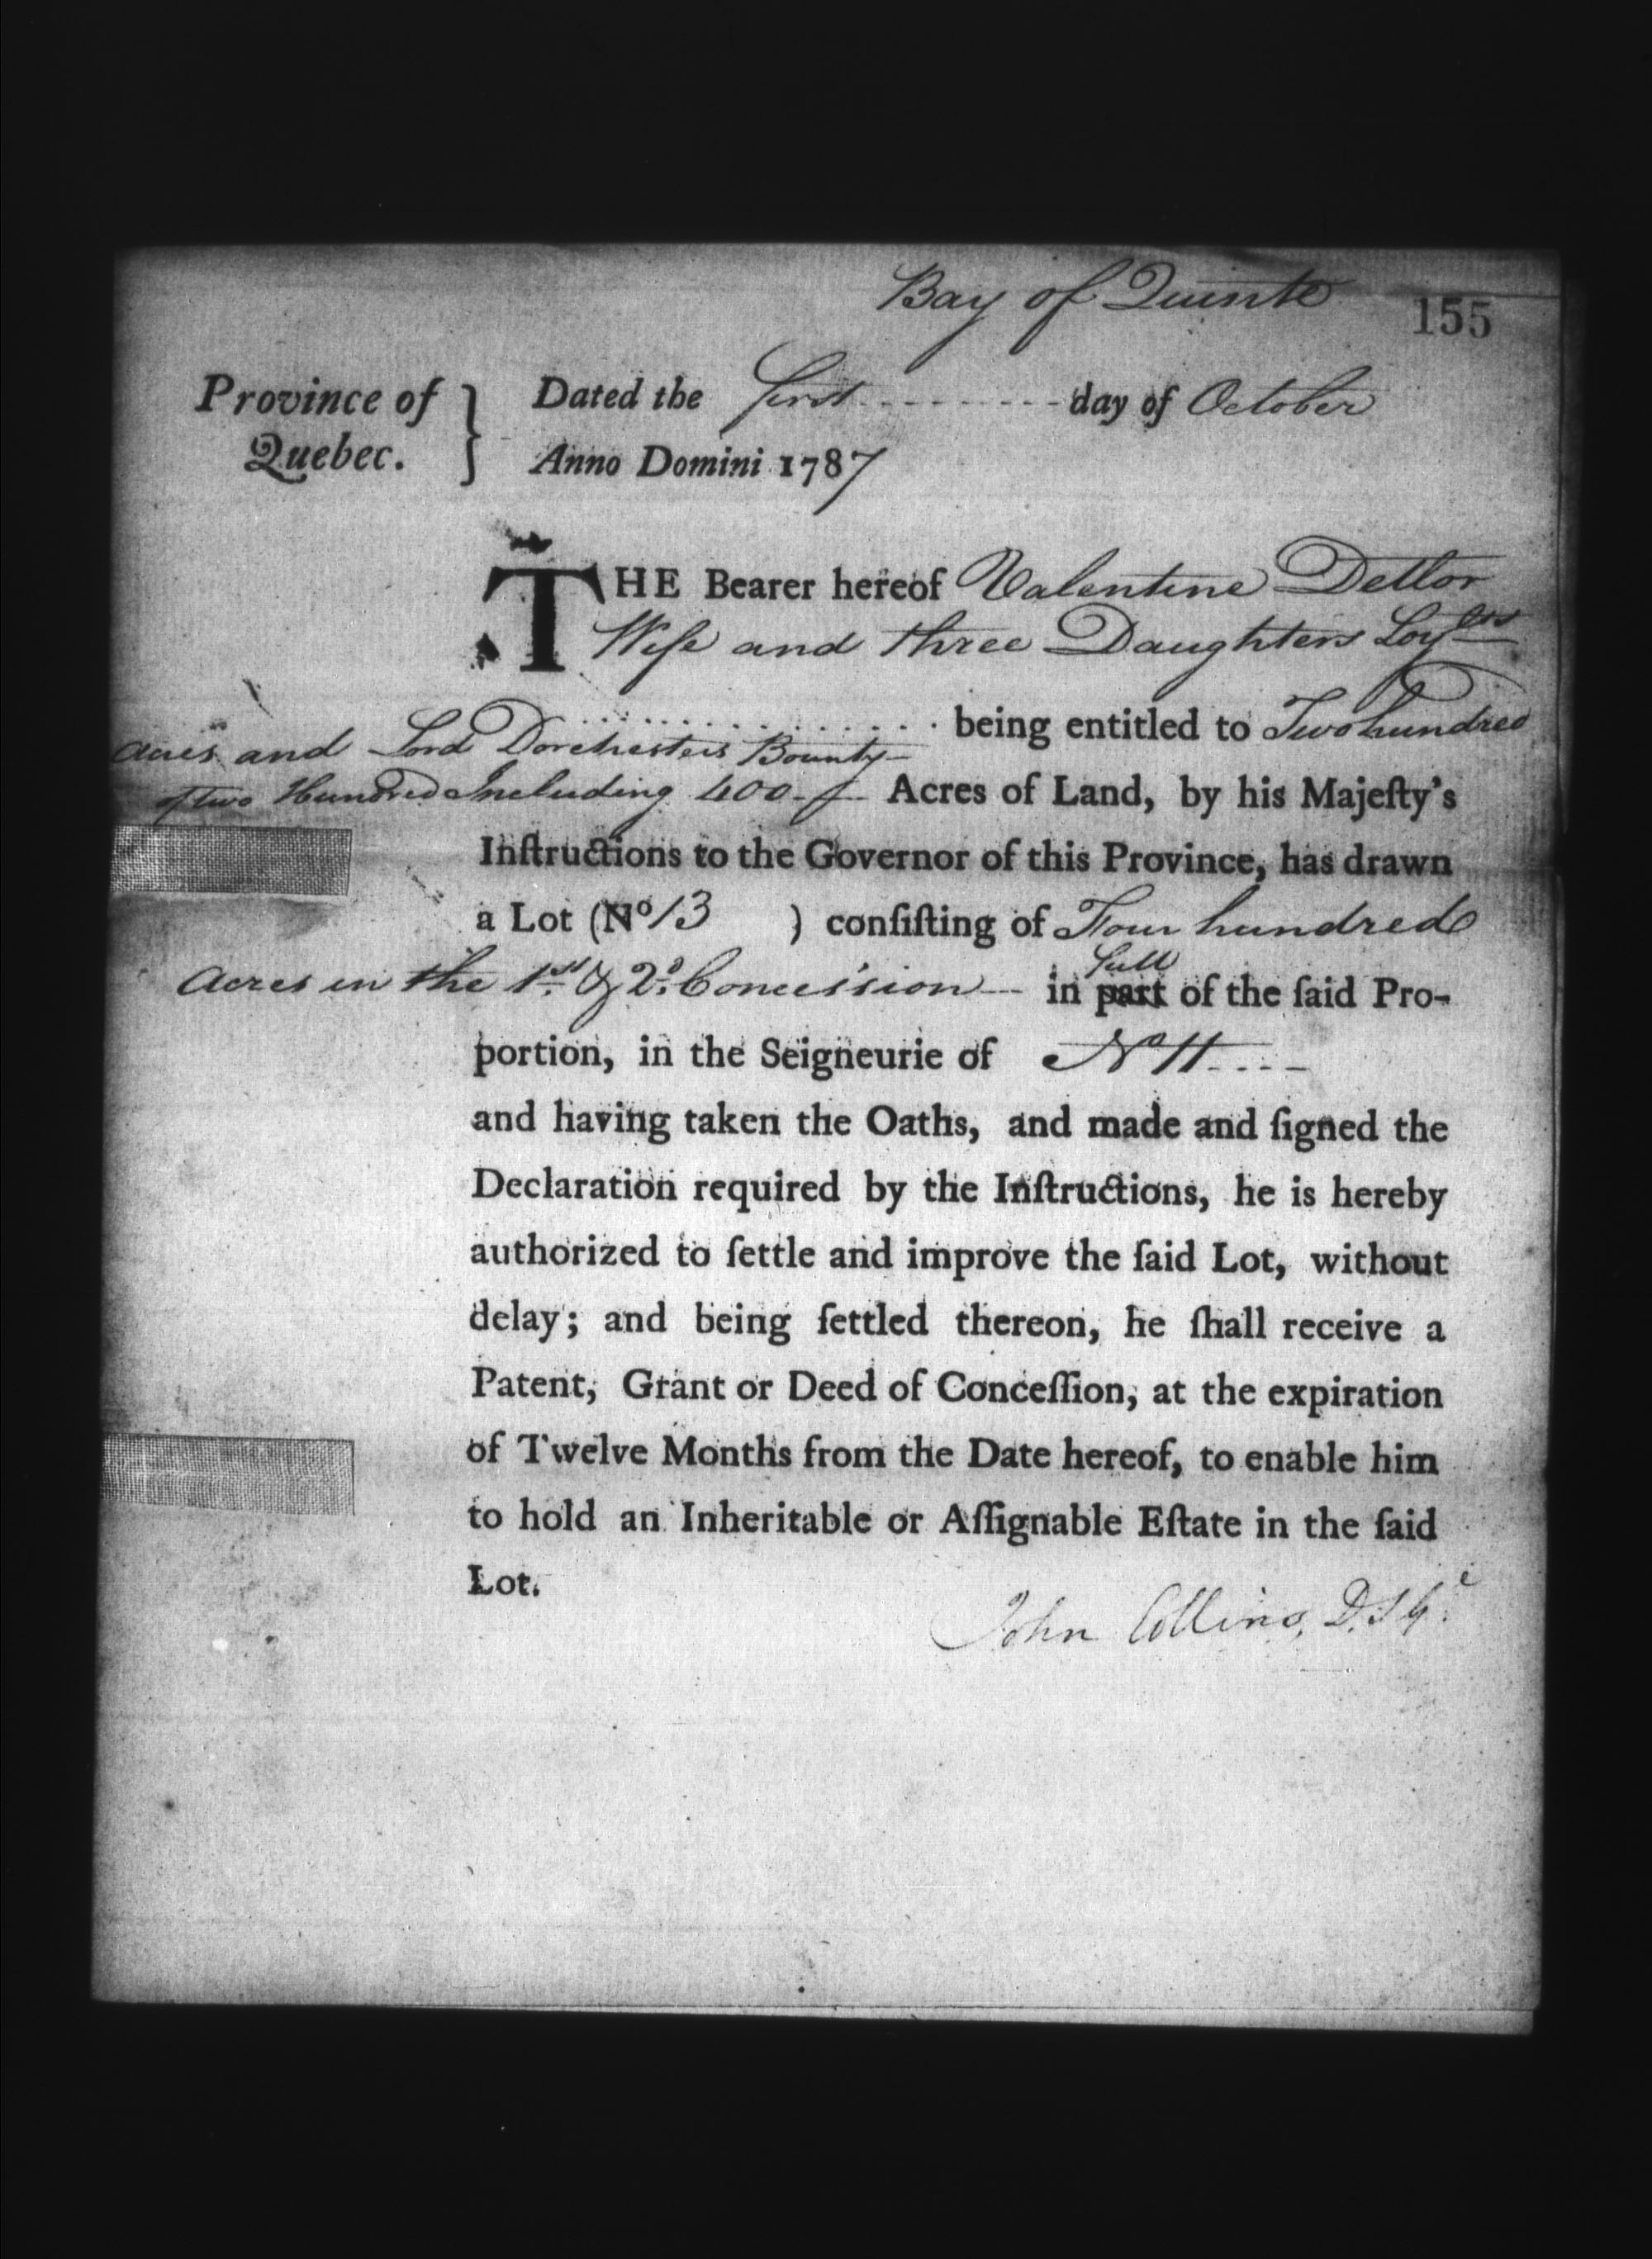 Bay of Quinte
155
Province of Quebec. } Dated the first day of October
Anno Domini 1787
THE Bearer hereof Valentine Detlor
Wife and three Daughters Loylsts
being entitled to Two hundred
Acres and Lord Dorchesters Bounty
of two Hundred Including 400 Acres of Land, by his Majeſty's
Inſtructions to the Governor of this Province, has drawn
a Lot (No 13 ) conſiſting of Four hundred
Acres in the 1st & 2d Concession in full part of the ſaid Pro-
portion, in the Seigneurie of No 11
and having taken the Oaths, and made and ſigned the
Declaration required by the Inſtructions, he is hereby
authorized to ſettle and improve the ſaid Lot, without
delay; and being ſettled thereon, he ſhall receive a
Patent, Grant or Deed of Conceſſion, at the expiration
of Twelve Months from the Date hereof, to enable him
to hold an Inheritable or Aſſignable Eſtate in the ſaid
Lot.
John Collins, D.S.G.